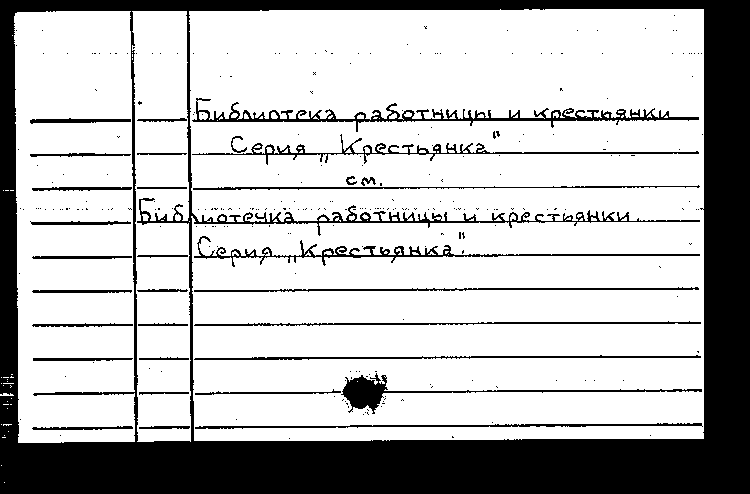 Библиотека работницы и крестьянки
Серия „Крестьянка"
см.
Библиотечка работницы и крестьянки.
Серия „Крестьянка".